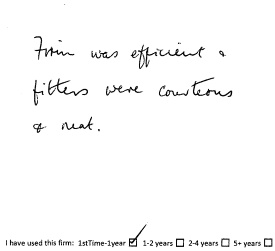 Firm was efficient &
fitters were courteous
& neat.
I have used this firm: 1stTime-1year ☑ 1-2 years ☐ 2-4 years ☐ 5+ years ☐